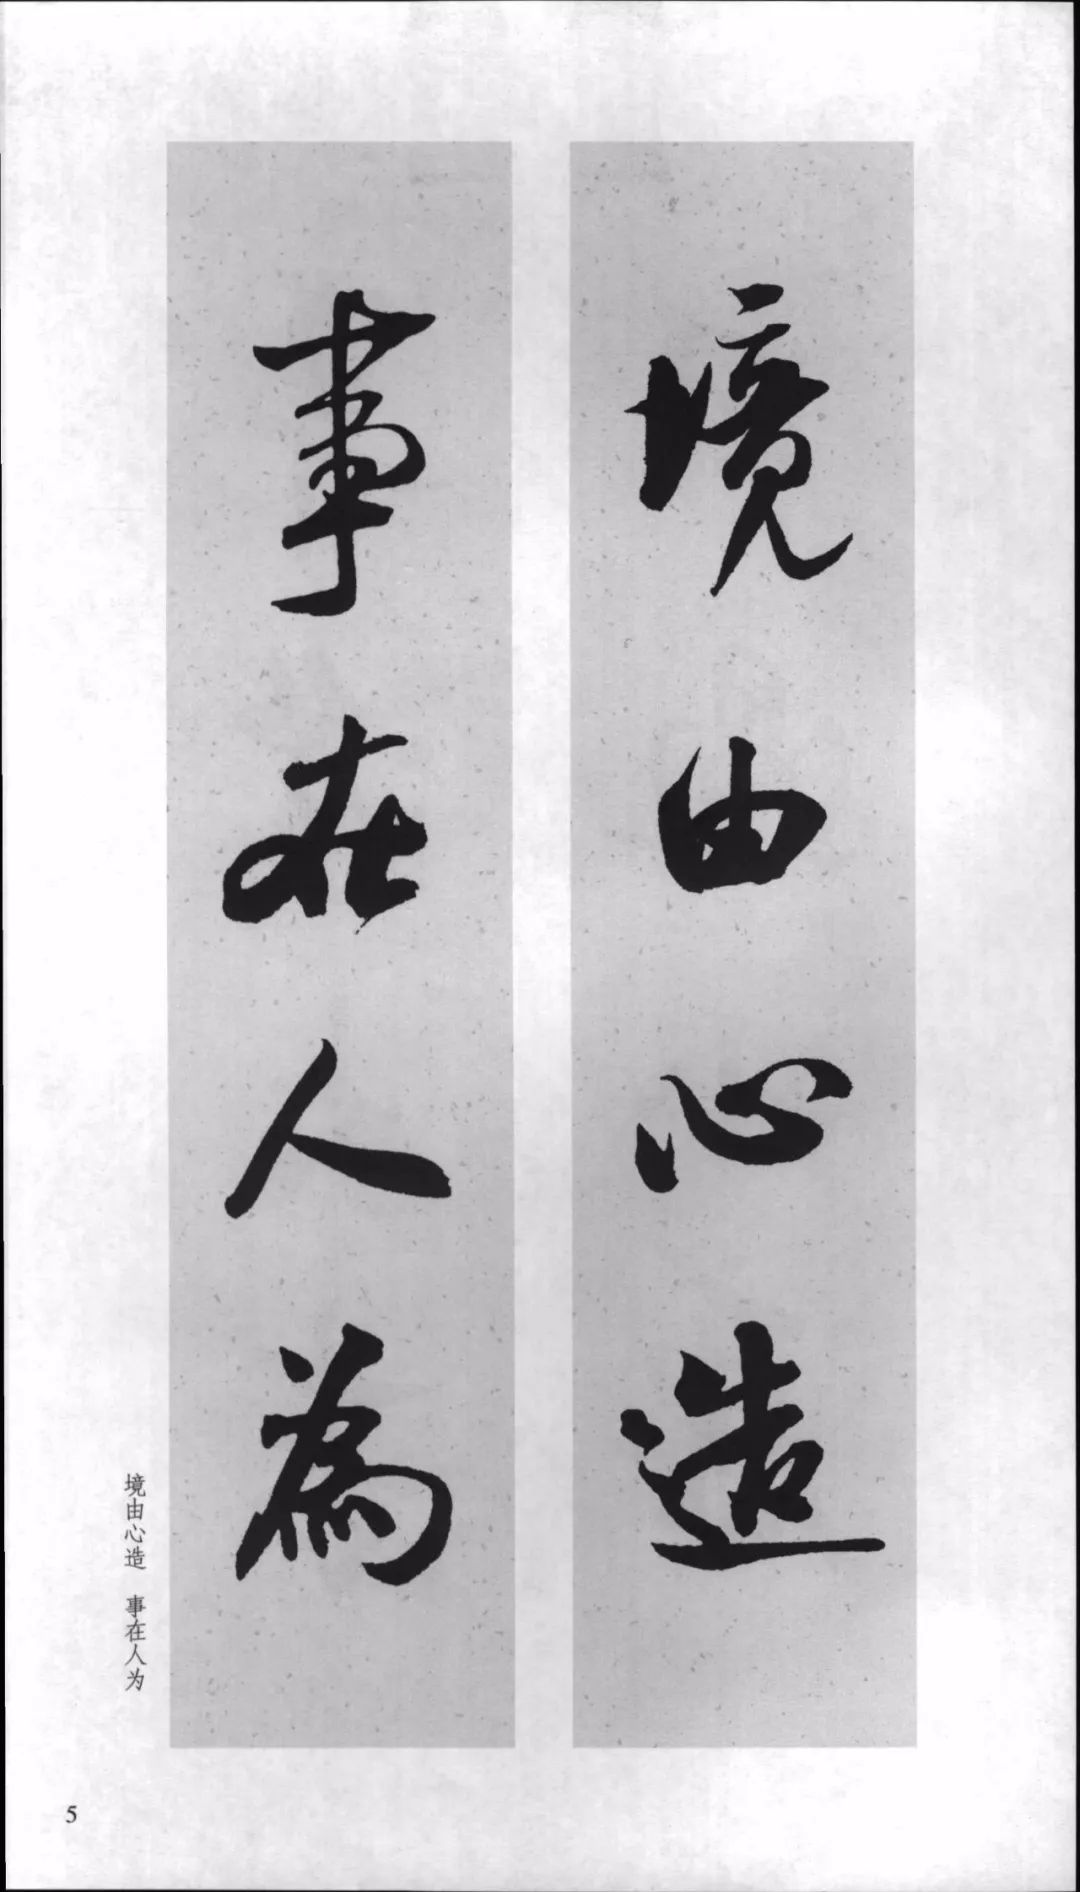 境由心造
事在人為
境由心造 事在人为
5